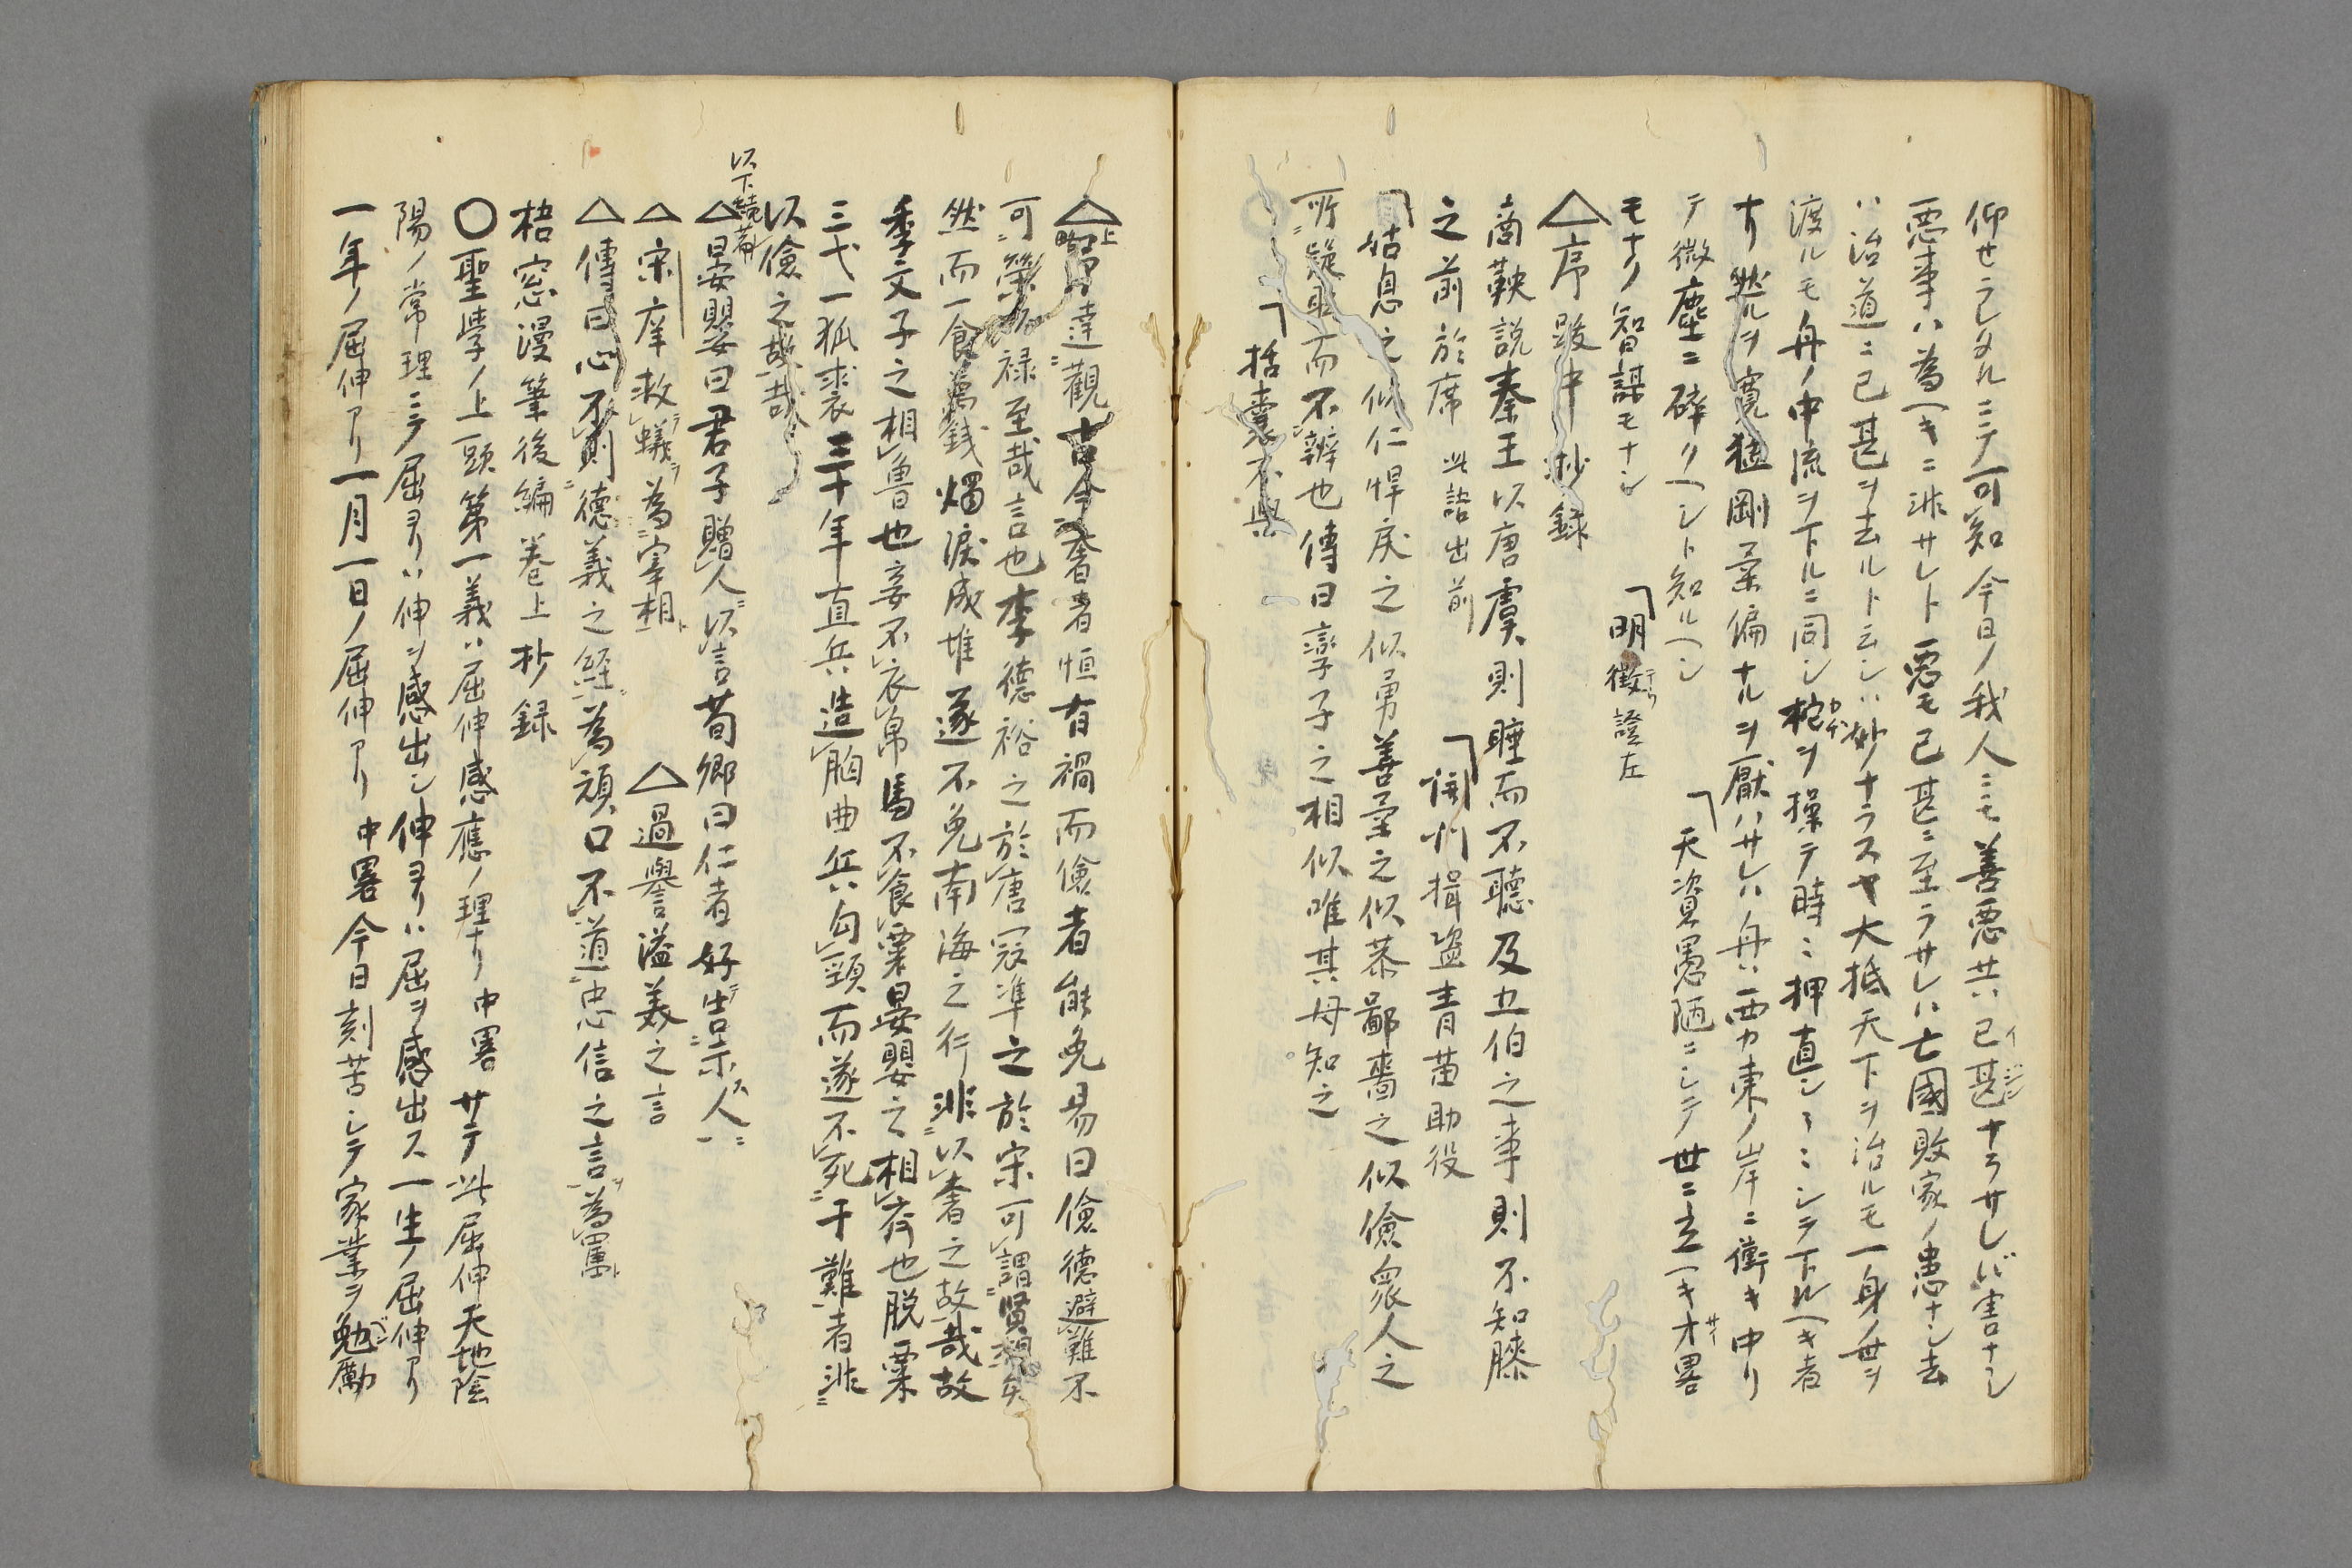 仰セラレタルニテ可知今日ノ我人ニモ善悪共ハ已甚ナラサレバ害ナシ
悪事ハ為ヘキニ非サレト悪モ已甚ニ至ラサレハ亡國敗家ノ患ナシ去
ハ治道ニ已甚ヲ去ルト云シハ妙ナラスヤ大抵天下ヲ治ルモ一身ノ世ヲ
渡ルモ舟ノ中流ヲ下ルニ同シ柁ヲ操テ時ニ押直シ〻ニシテ下ルヘキ者
ナリ然ルヲ寛猛剛柔偏ナルヲ厭ハサレハ舟ハ西カ東ノ岸ニ衝キ中リ
テ微塵ニ碎クヘシト知ルヘシ 「天資愚陋ニシテ世ニ立ヘキオ畧
モナク智謀モナシ 「明徴證左
△序跋中抄録
商鞅説秦王以唐虞則睡而不聽及五伯之事則不知膝
之前於席 此語出前 「開州揖盗青苗助役
「姑息之似仁悍戻之似勇善柔之似恭鄙嗇之似儉衆人之
所疑耴而不辨也傳曰孿子之相似唯其母知之
「括囊不與
△上畧達觀古今奢者恒有禍而儉者能免易曰儉徳避難不
可榮禄至哉言也李徳裕之於唐冦準之於宋可謂賢相矣
然而一食萬銭燭涙成堆遂不免南海之行非以奢之故哉故
季文子之相魯也妾不衣帛馬不食粟晏嬰之相齊也脱粟
三弋一狐裘三十年直兵造胸曲兵勾頸而遂不死于難者非
以儉之故哉
以下続蒙
△晏嬰曰君子贈人以言荀卿曰仁者好告示人
△宋庠救蟻為宰相 △過譽溢美之言
△傳曰心不則徳義之経為頑口不道忠信之言為嚚
梧窓漫筆後編巻上抄録
○聖學ノ上頭第一義ハ屈伸感應ノ理ナリ中畧サテ此屈伸天地陰
陽ノ常理ニテ屈ヨリハ伸ヲ感出シ伸ヨリハ屈ヲ感出ス一生ノ屈伸アリ
一年ノ屈伸アリ一月一日ノ屈伸アリ 中畧今日刻苦シテ家業ヲ勉勵